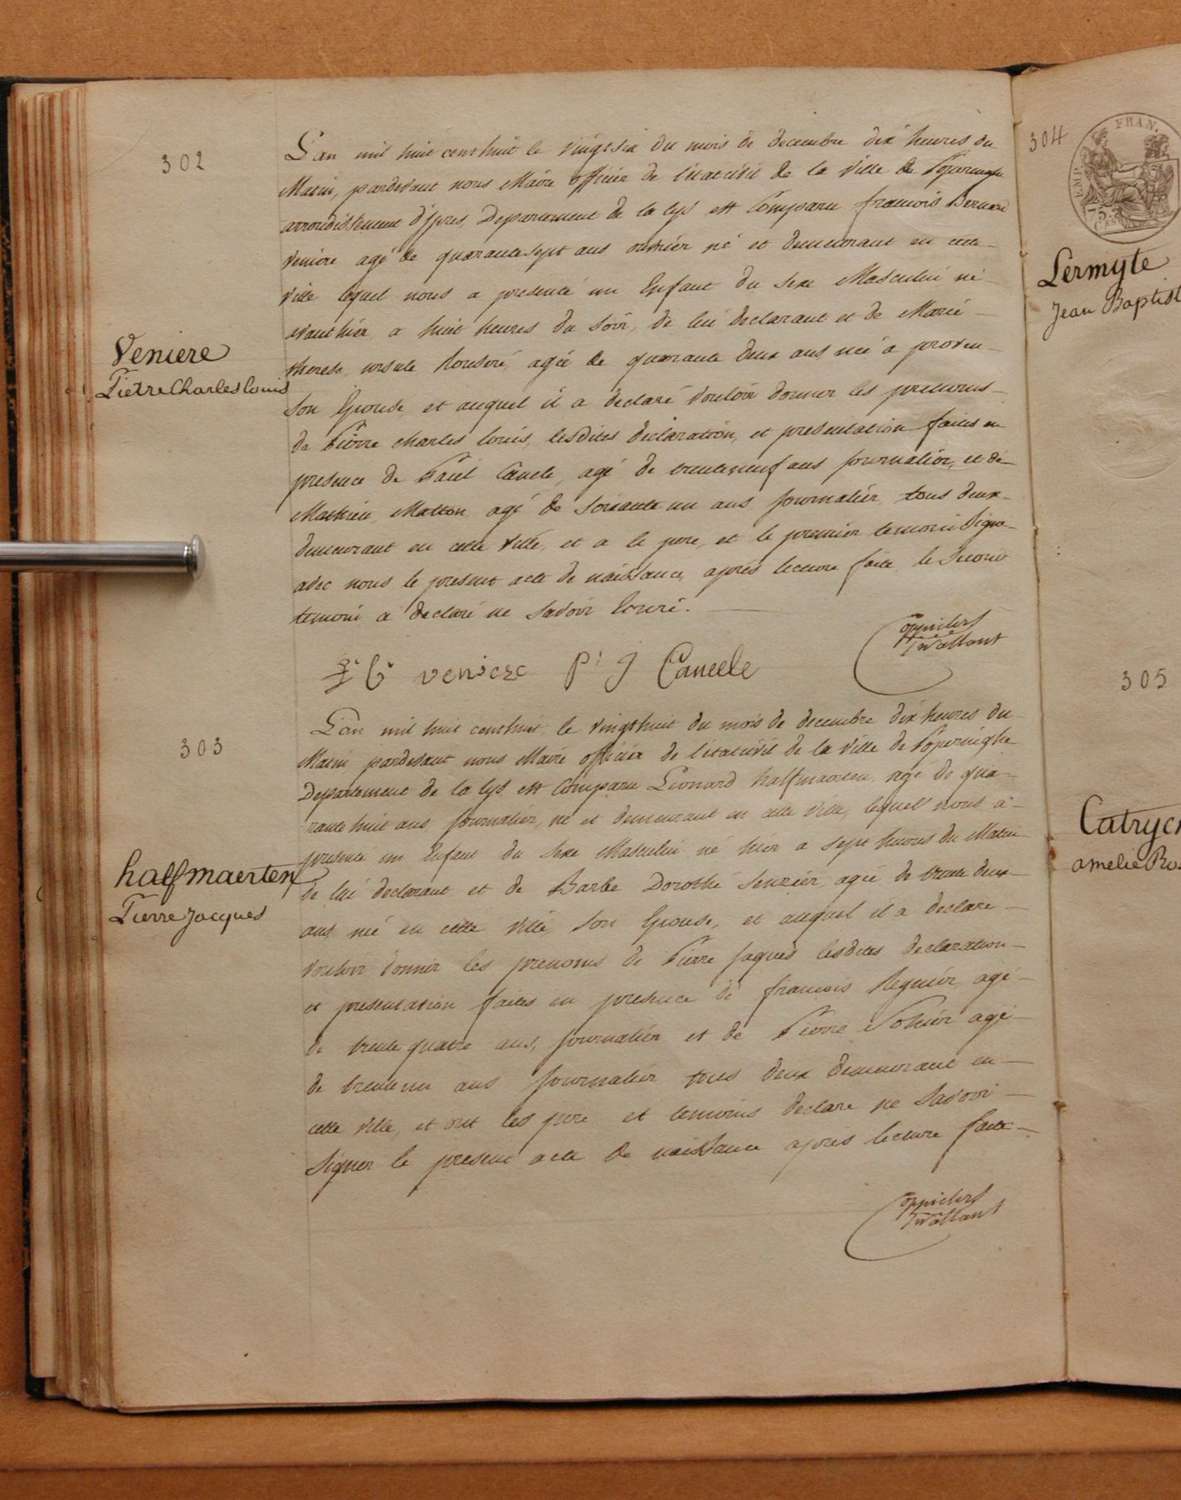 302
L'an mil huit cent huit le vingt six du mois de decembre dix heures du
Matin, pardevant nous Maire officier de l'etat civil de la ville de Poperinghe
arrondissement d'ypres, Departement de la lys est Comparu francois Bernard
Veniere agé de quarante sept ans ouvrier né et demeurant en cette
ville lequel nous a presenté un Enfant du Sexe Masculin né
avant hier a huit heures du soir, de lui declarant et de Marie
therese ursule agée de quarante deux ans née a proven
Son Epouse et auquel il a declaré vouloir donner les prenoms
Veniere
Pierre Charles Louis
de Pierre Charles louis, lesdites declaration, et presentation faites en
presence de Paul Canele, agé de trente neuf ans journalier, et de
Mathieu Matton agé de soixante un ans journalier tous deux
demeurant en cette ville, et a le pere, et le premier temoin Signé
avec nous le present acte de naissance, après lecture faite, le Second
temoin a declaré ne savoir Ecrire.
veniere P: J Caneele
303
L'an mil huit cent huit le vingt huit du mois de decembre dix heures du
Matin pardevant nous Maire officier de l'etat civil de la ville de Poperinghe
Departement de la lys est Comparu Leonard halfmaerten agé de qua-
rante huit ans journalier, né et demeurant en cette ville, lequel nous a
presenté un Enfant du Sexe Masculin né hier a sept heures du Matin
halfmaerten
Pierre Jacques
de lui declarant et de Barbe Dorothé agée de trente deux
ans née en cette ville Son Epouse, et auquel il a declaré
vouloir donner les prenoms de Pierre Jaques lesdites declaration
et presentation faites en presence de francois agé
de trente quatre ans, journalier et de Pierre agé
de trente un ans journalier tous deux demeurant en
cette ville, et ont les pere et temoins declaré ne Savoir
Signer le present acte de naissance après lecture faite
304
EMP. FRAN.
75.
Lermyte
Jean Baptist
305
Catryc
amelie Ro